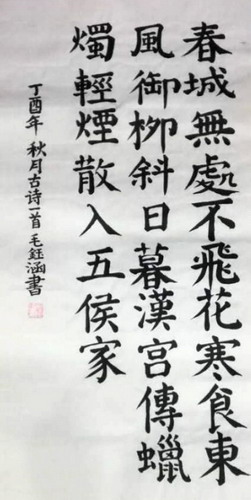 春城無處不飛花寒食東
風御柳斜日暮漢宮傳蠟
燭輕煙散入五侯家
丁酉年 秋月古诗一首 毛鈺涵書